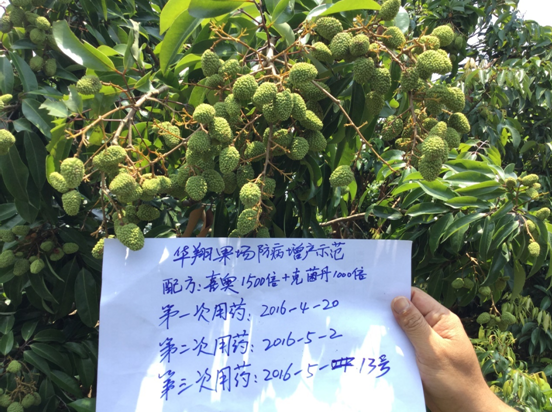 华翔果场防病增产示范
配方:喜奥1500倍+克菌丹1000倍
第一次用药:2016-4-20
第二次用药:2016-5-2
第三次用药:2016-5-13号